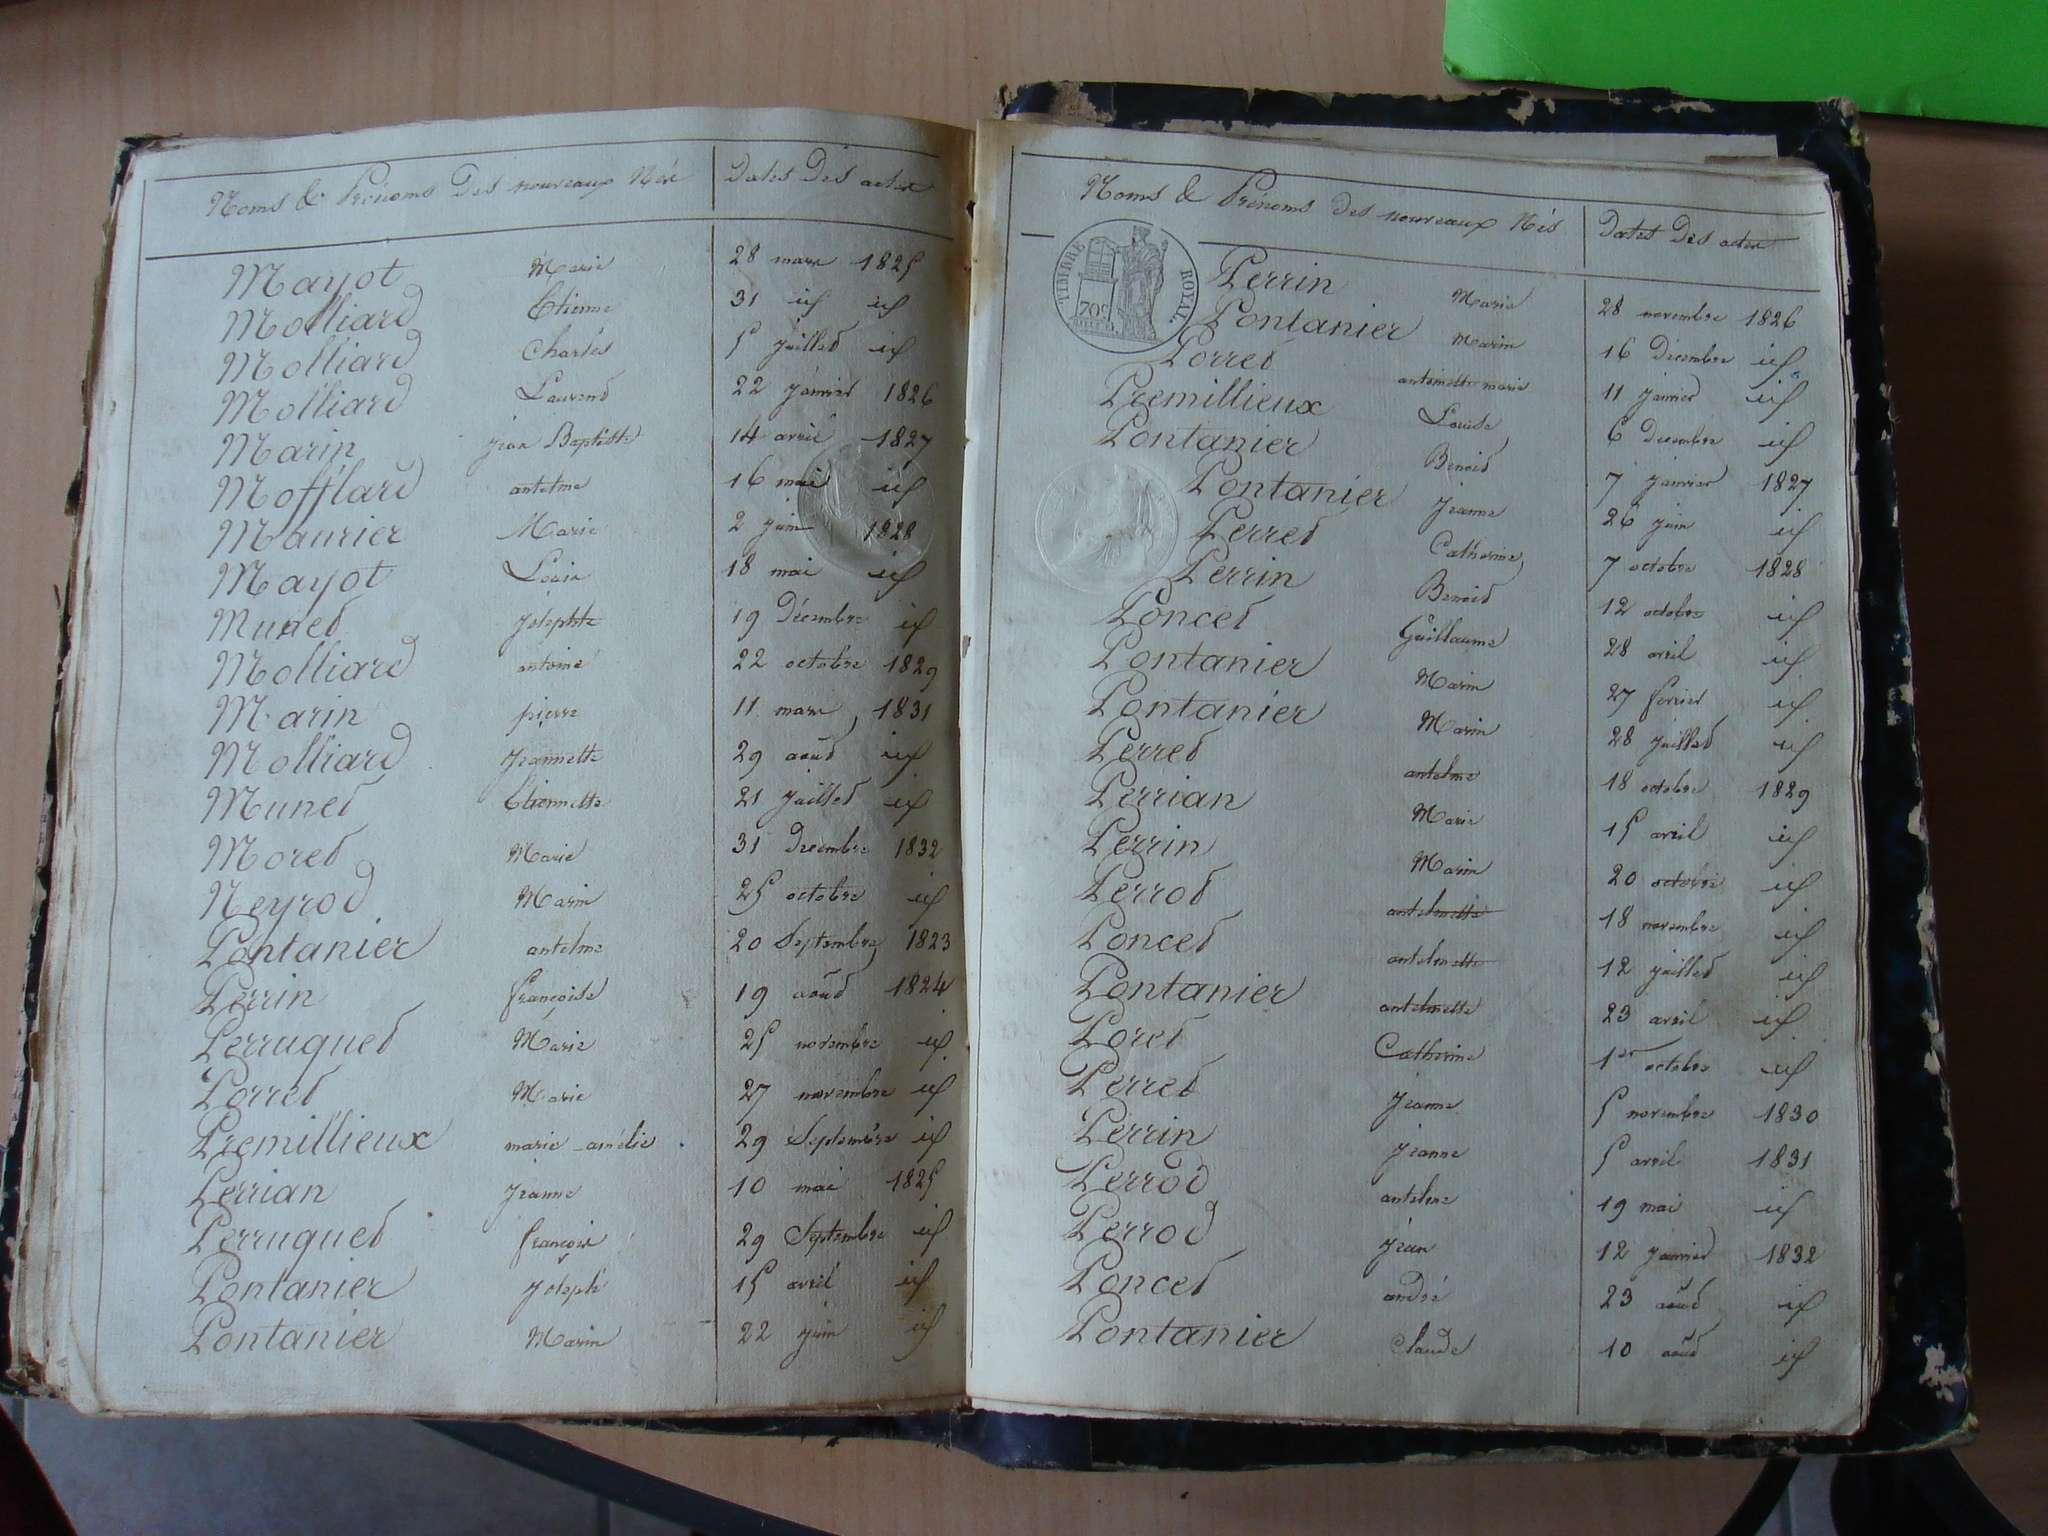 Noms & Prénoms Des nouveaux Nés Dates Des actes
Mayot Marie 28 mars 1825
Molliard Etienne 31 id id
Molliard Charles 5 juillet id
Molliard Laurent 22 janvier 1826
Marin jean Baptiste 14 avril 1827
Mofflard antelme 16 mai id
Maurier Marie 2 juin 1828
Mayot Louis 18 mai id
Munet josephte 19 Décembre id
Molliard antoine 22 octobre 1829
Marin pierre 11 mars 1831
Molliard jeannette 29 août id
Munet Etiennette 21 juillet id
Moret Marie 31 Decembre 1832
Neyrod Marin 25 octobre id
Pontanier antelme 20 Septembre 1823
Perrin françoise 19 août 1824
Perruquet Marie 25 novembre id
Porret Marie 27 novembre id
Premillieux marie-amélie 29 Septembre id
Perrian jeanne 10 mai 1825
Perruquet françois 29 Septembre id
Pontanier joseph 15 avril id
Pontanier Marin 22 juin id
Noms & Prénoms Des nouveaux Nés Dates Des actes
TIMBRE ROYAL
70c
Perrin Marie 28 novembre 1826
Pontanier Marin 16 Décembre id
Porret antoinette marie 11 janvier id
Premillieux Louise 6 Decembre id
Pontanier Benoit 7 janvier 1827
Pontanier jeanne 26 juin id
Perret Catherine 7 octobre 1828
Perrin Benoit 12 octobre id
Poncet Guillaume 28 avril id
Pontanier Marin 27 fevrier id
Pontanier Marin 28 juillet id
Perret antelme 18 octobre 1829
Perrian Marie 15 avril id
Perrin Marin 20 octobre id
Perrot antelmette 18 novembre id
Poncet antelmette 12 juillet id
Pontanier antelmette 23 avril id
Poret Catherine 1er octobre id
Perret jeanne 5 novembre 1830
Perrin jeanne 5 avril 1831
Perrod antelme 19 mai id
Perrod jean 12 janvier 1832
Poncet andré 23 août id
Pontanier Claude 10 août id